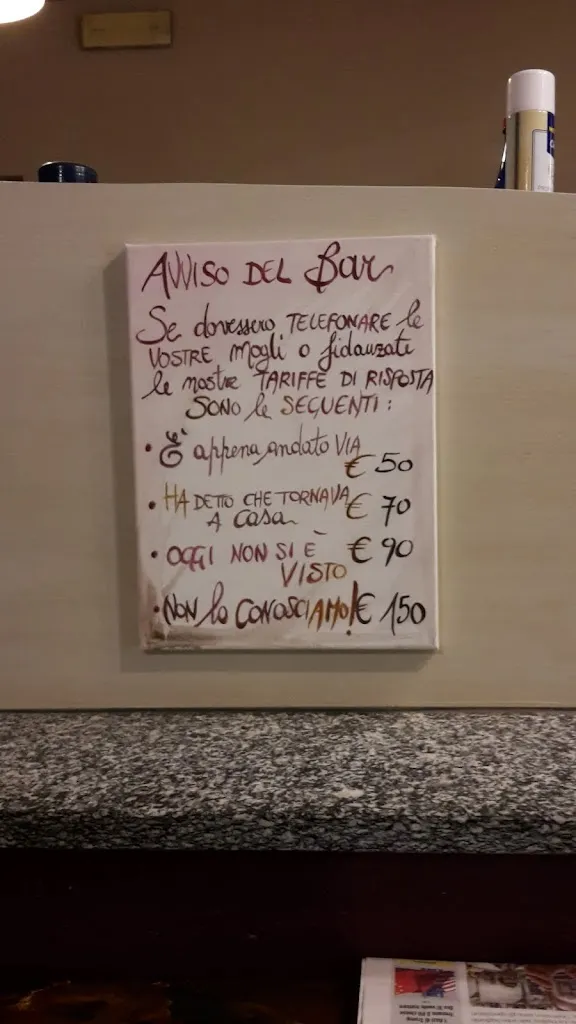 AVVISO DEL Bar
Se dovessero TELEFONARE le
VOSTRE mogli o fidanzate
le nostre TARIFFE DI RISPOSTA
SONO le SEGUENTI:
• È appena andato VIA
€ 50
• HA DETTO CHE TORNAVA € 70
A casa
• OGGI NON SI È € 90
VISTO
• NON lo CONOSCIAMO! € 150